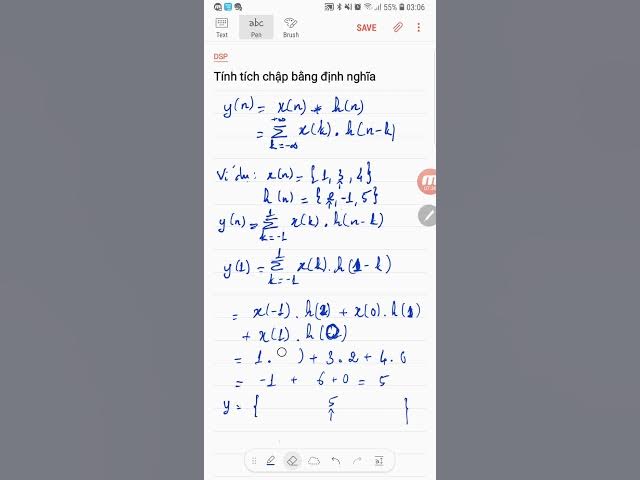 55% 03:06
Text
abc
Pen
Brush
SAVE
DSP
Tính tích chập bằng định nghĩa
y(n) = x(n) * h(n)
+∞
= Σ x(k) . h(n-k)
k=-∞
Ví dụ: x(n) = {1, 3, 4}
↑
h(n) = {2, -1, 5}
↑
1
y(n) = Σ x(k) . h(n-k)
k=-1
1
y(1) = Σ x(k) . h(1-k)
k=-1
= x(-1) . h(2) + x(0) . h(1)
+ x(1) . h(0)
= 1 . ) + 3 . 2 + 4 . 0
= -1 + 6 + 0 = 5
y = { 5 }
↑